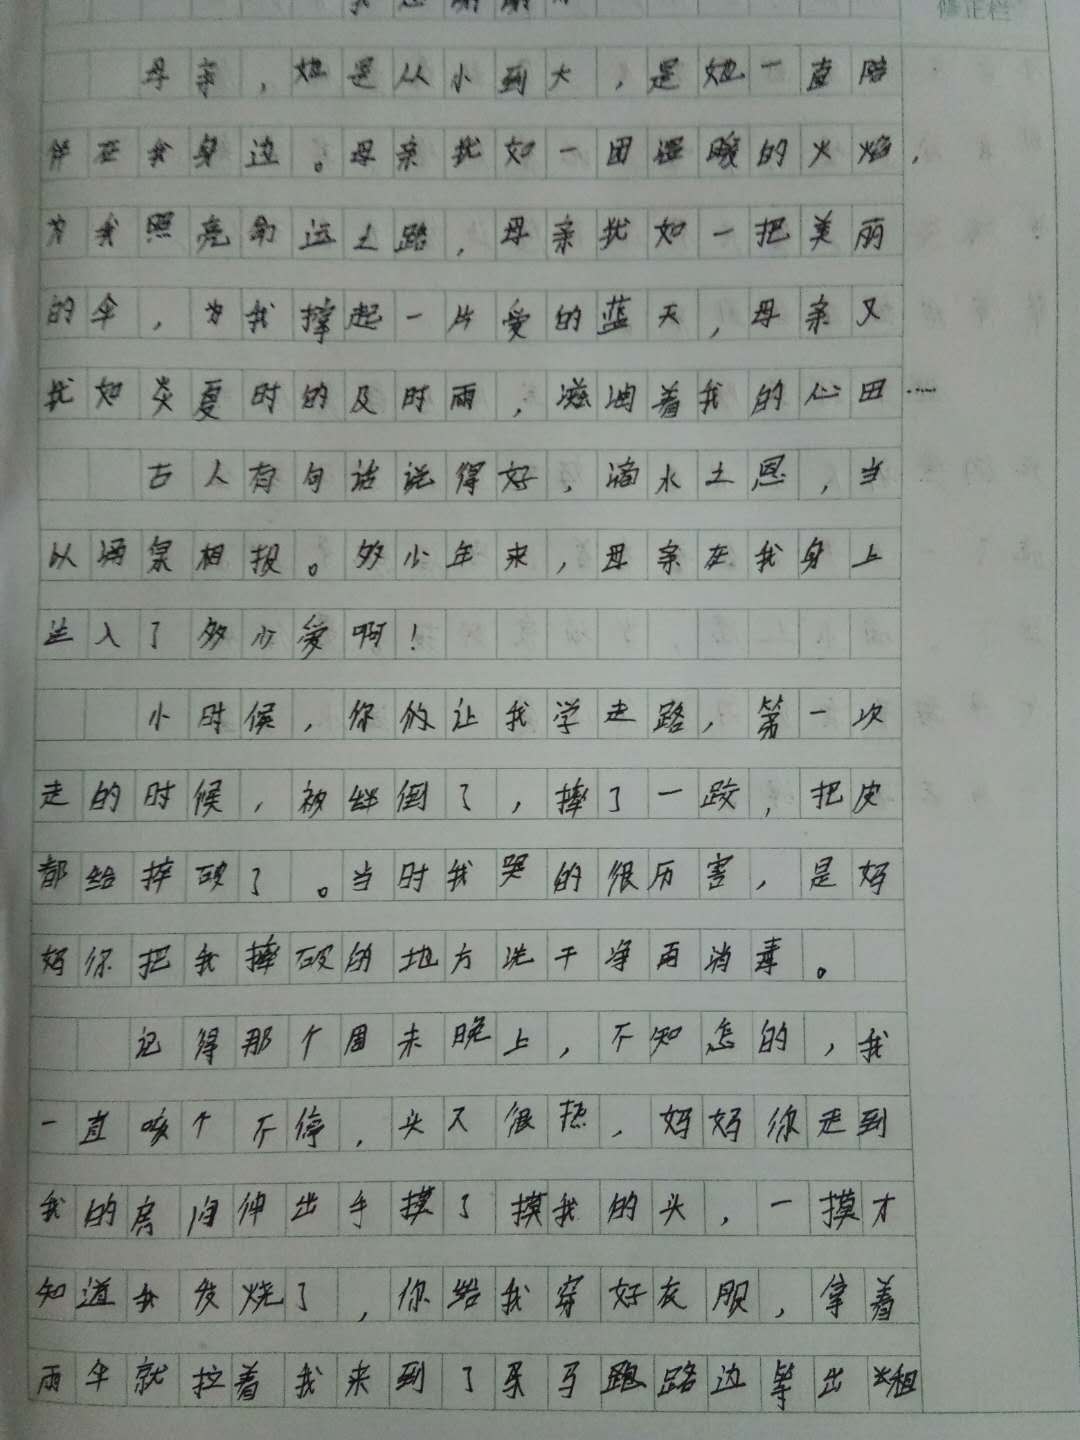 修正栏
母亲，她是从小到大，是她一直陪
伴在我身边。母亲就如一团温暖的火焰，
为我照亮命运之路，母亲就如一把美丽
的伞，为我撑起一片爱的蓝天，母亲又
就如炎夏时的及时雨，滋润着我的心田……
古人有句话说得好，滴水之恩，当
以涌泉相报。多少年来，母亲在我身上
注入了多少爱啊！
小时候，你让我学走路，第一次
走的时候，被绊倒了，摔了一跤，把皮
都给摔破了。当时我哭的很历害，是妈
妈你把我摔破的地方洗干净再消毒。
记得那个周末晚上，不知怎的，我
一直咳个不停，头又很热，妈妈你走到
我的房间伸出手摸了摸我的头，一摸才
知道我发烧了，你给我穿好衣服，拿着
雨伞就拉着我来到了马跑路边等出租